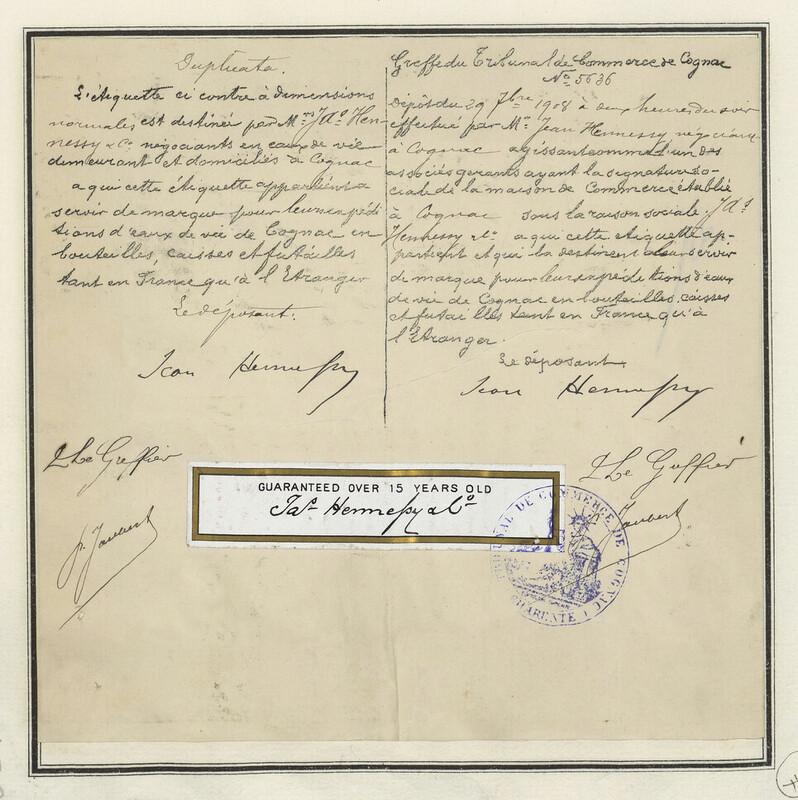 Duplicata.
L'étiquette ci contre à dimensions
normales est destinée par Mrs Jas Hen-
nessy & Co négociants en eaux de vie
demeurant et domiciliés à Cognac
a qui cette étiquette appartient a
servir de marque pour leurs expédi-
tions d'eaux de vie de Cognac en
bouteilles, caisses et futailles
tant en France qu'à l'Etranger
Le déposant.
Jean Hennessy
Le Greffier
p. Jaubert
Greffe du Tribunal de Commerce de Cognac
No 5636
Dépôt du 29 7bre 1908 à deux heures du soir
effectué par Mr Jean Hennessy négociant
à Cognac agissant comme l'un des
associés gerants ayant la signature so-
ciale de la maison de Commerce établie
à Cognac sous la raison sociale Jas
Hennessy & Co a qui cette etiquette ap-
partient et qui la destinent a leur servir
de marque pour leurs expéditions d'eaux
de vie de Cognac en bouteilles, caisses
et futailles tant en France qu'à
l'Etranger.
Le déposant
Jean Hennessy
Le Greffier
Jaubert
GUARANTEED OVER 15 YEARS OLD
Jas Hennessy & Co
TRIBUNAL DE COMMERCE DE COGNAC
CHARENTE